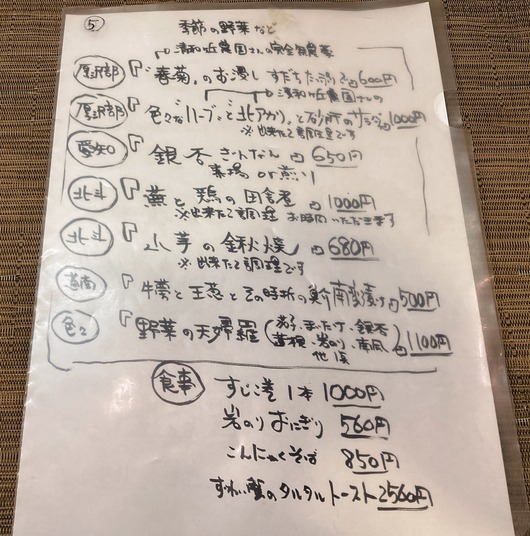 ⑤ 季節の野菜など
清和丘農園さんの完全有農薬
厚沢部 『春菊』のお浸し すだち 600円
清和丘農園さんの
厚沢部 『色々な"ハーブ"と"北アカリ"と砂肝のサラダ 1000円
※出来たて調理です
愛知 『銀杏 ぎんなん 650円
素揚 or 煎り
北斗 『蕪と鶏の田舎煮 1000円
※出来たて調理 お時間いただきます
北斗 『山芋の鍬焼 680円
※出来たて調理です
道南 『牛蒡と玉葱とその時折の南蛮漬け 500円
色々 『野菜の天婦羅 (茄子、まいたけ、銀杏 1100円
蓮根、岩のり、南瓜
他1ヶ)
食事 すじこ巻 1本 1000円
岩のりおにぎり 560円
こんにゃくそば 850円
ずわい蟹のタルタルトースト 2560円